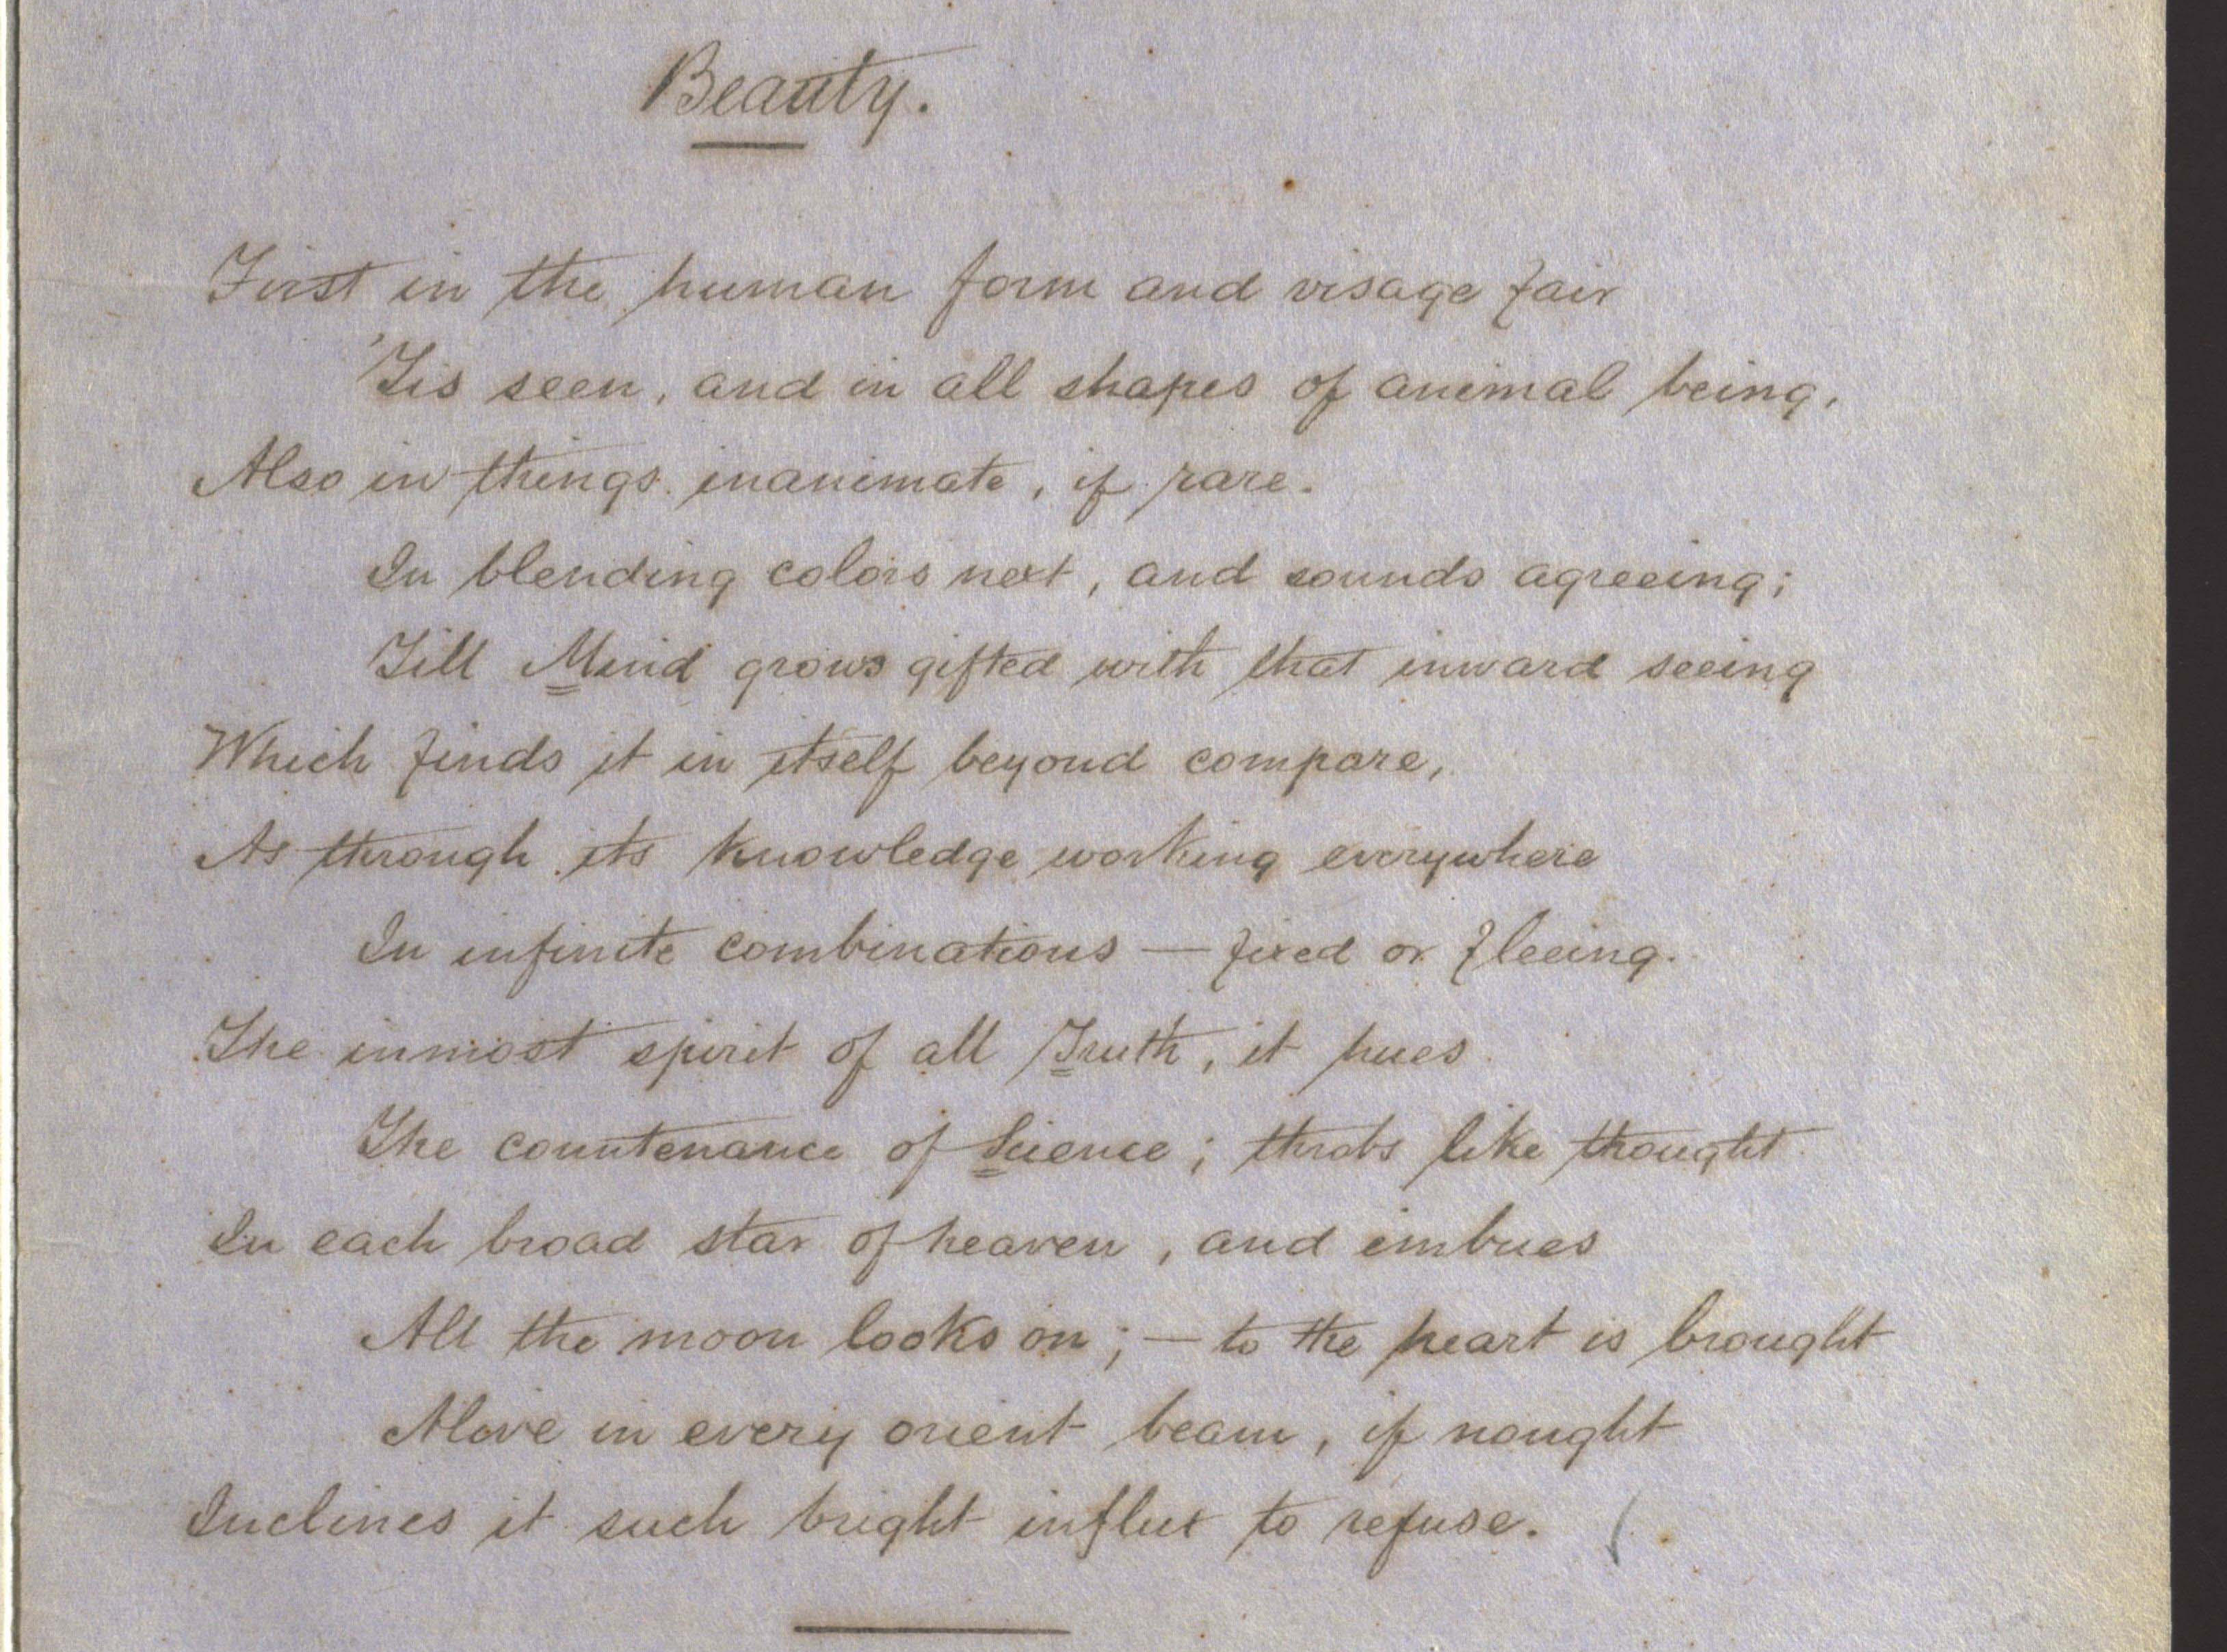 Beauty.
First in the human form and visage fair
'Tis seen, and in all shapes of animal being,
Also in things inanimate, if rare.
In blending colors next, and sounds agreeing;
Till Mind grows gifted with that inward seeing
Which finds it in itself beyond compare,
As through its knowledge working everywhere
In infinite combinations — fixed or fleeing.
The inmost spirit of all Truth, it hues
The countenance of Science; throbs like thought
In each broad star of heaven, and imbues
All the moon looks on; — to the heart is brought
Alove in every orient beam, if nought
Inclines it such bright influx to refuse.